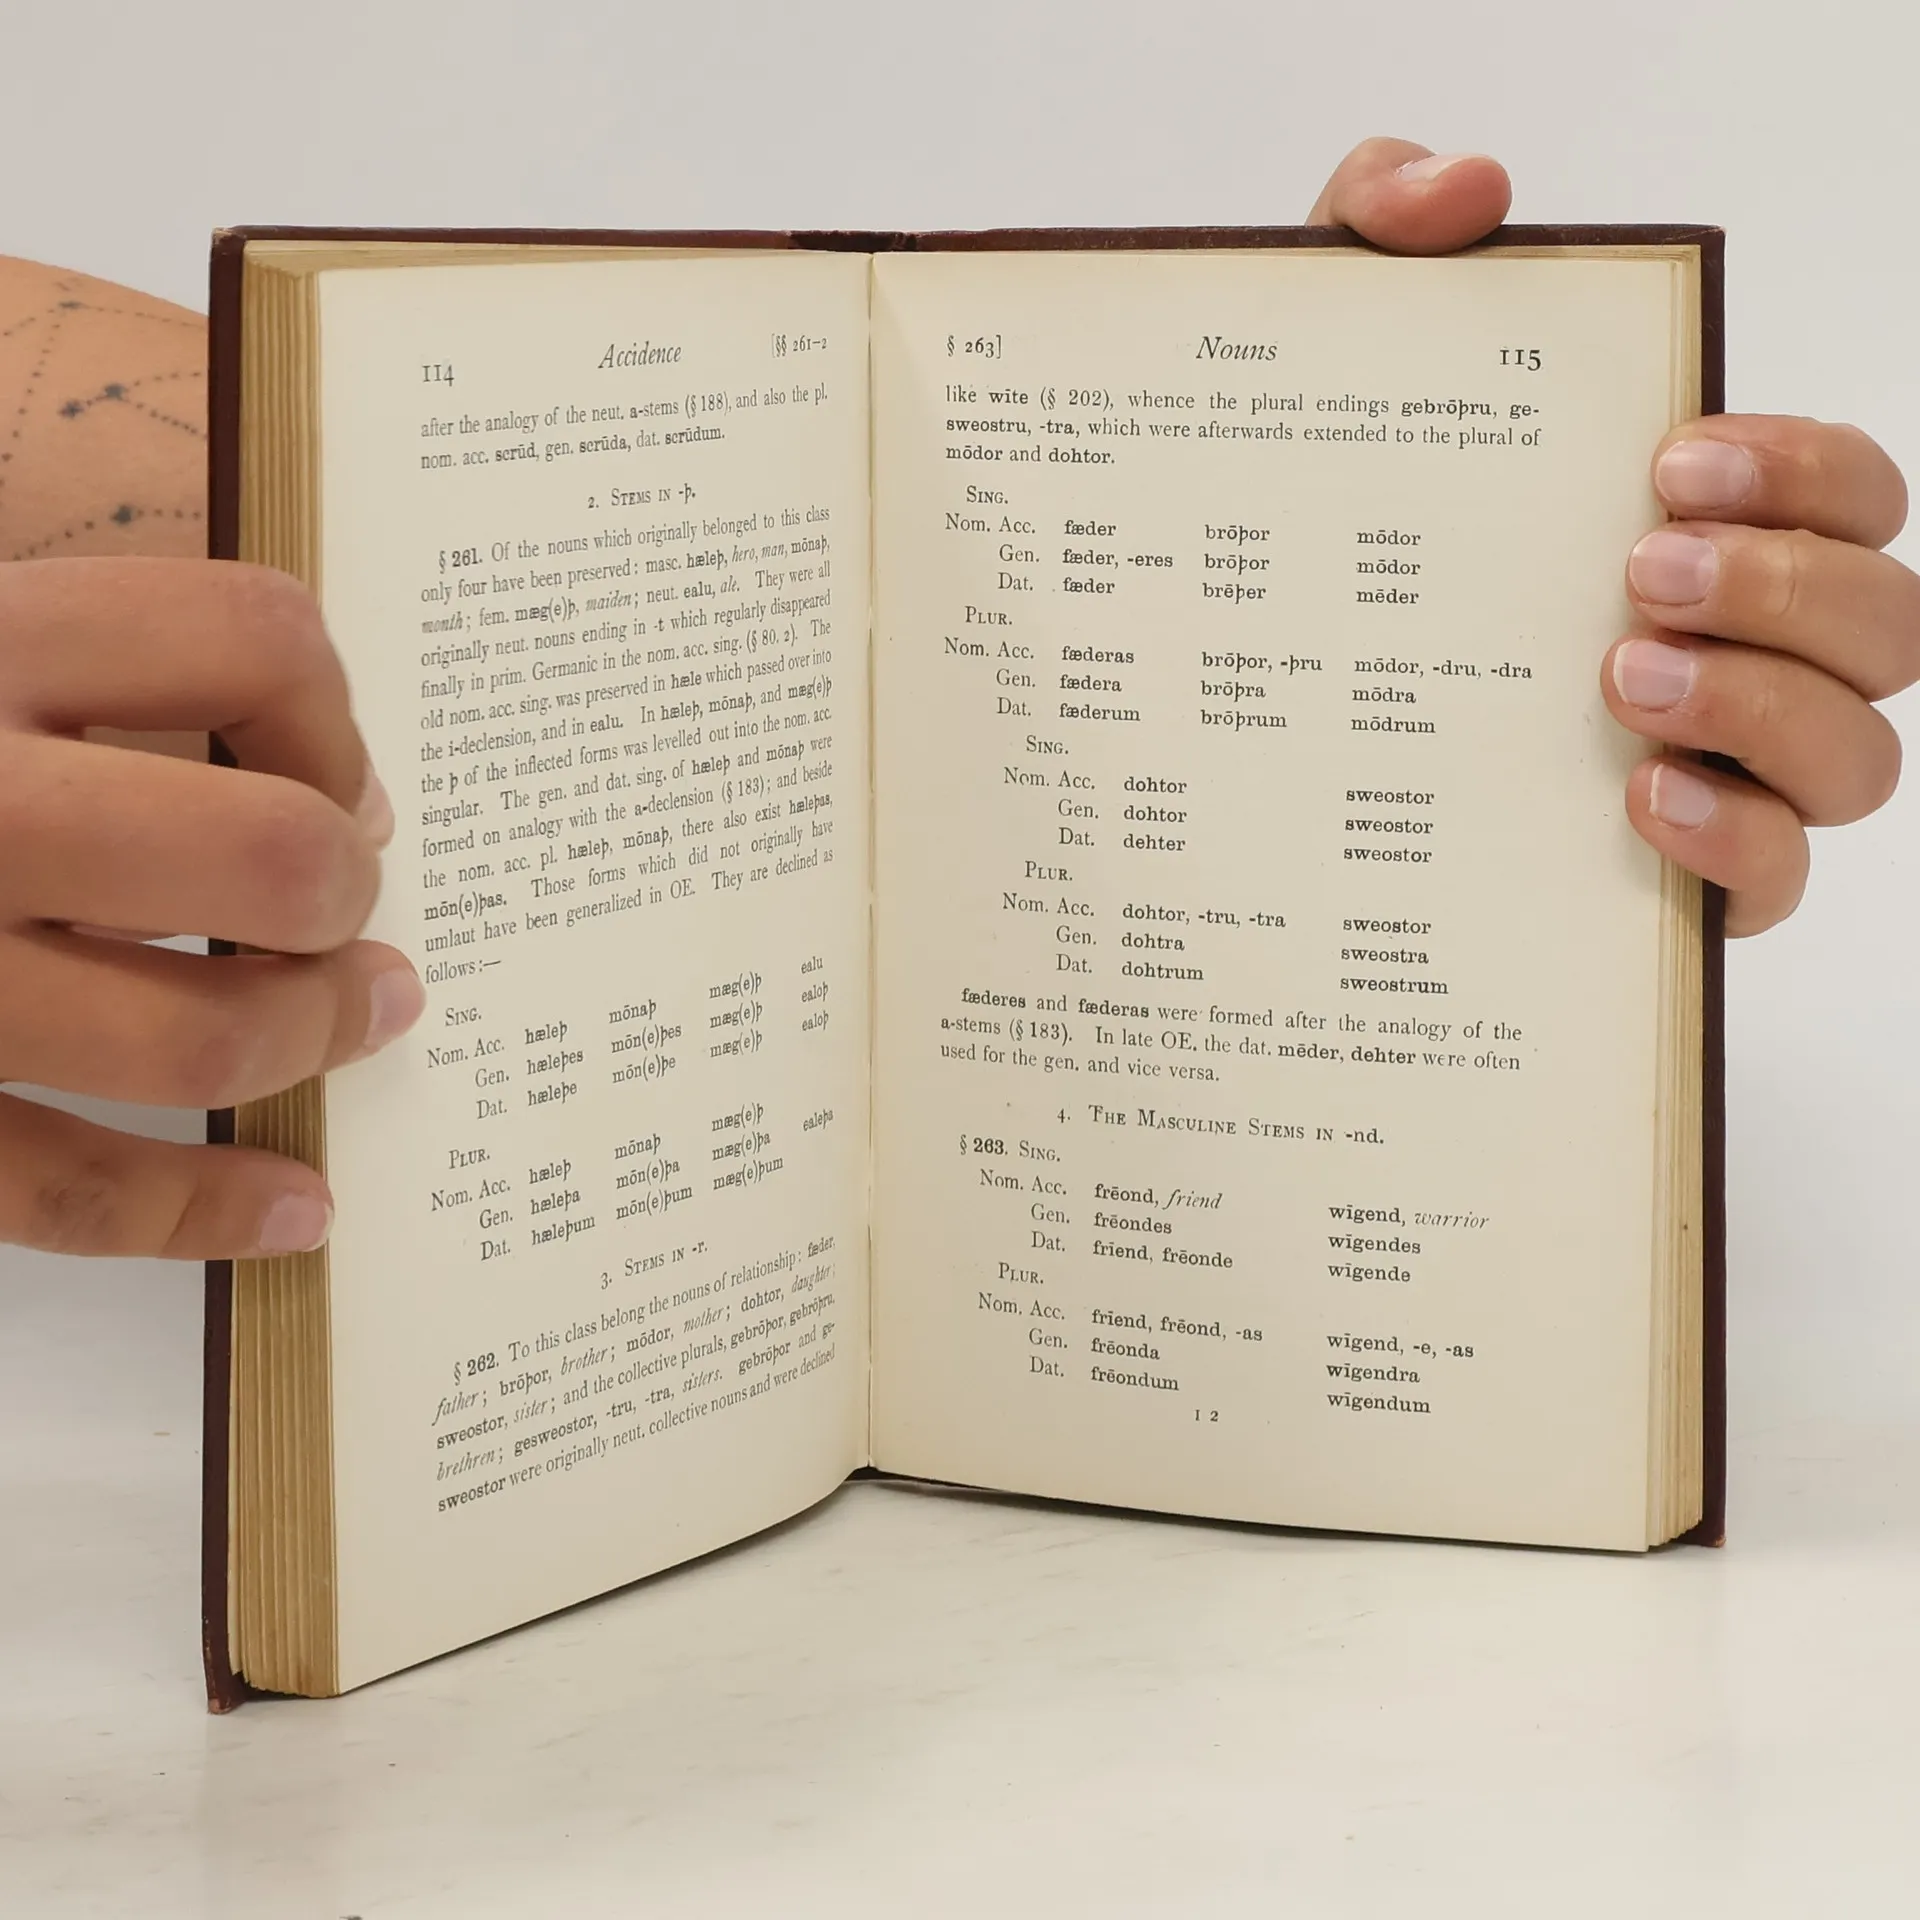 114 Accidence [§§ 261–2
after the analogy of the neut. a-stems (§ 188), and also the pl.
nom. acc. scrūd, gen. scrūda, dat. scrūdum.
2. Stems in -þ.
§ 261. Of the nouns which originally belonged to this class
only four have been preserved: masc. hæleþ, hero, man, mōnaþ,
month; fem. mæg(e)þ, maiden; neut. ealu, ale. They were all
originally neut. nouns ending in -t which regularly disappeared
finally in prim. Germanic in the nom. acc. sing. (§ 80. 2). The
old nom. acc. sing. was preserved in hæle which passed over into
the i-declension, and in ealu. In hæleþ, mōnaþ, and mæg(e)þ
the þ of the inflected forms was levelled out into the nom. acc.
singular. The gen. and dat. sing. of hæleþ and mōnaþ were
formed on analogy with the a-declension (§ 183); and beside
the nom. acc. pl. hæleþ, mōnaþ, there also exist hæleþas,
mōn(e)þas. Those forms which did not originally have
umlaut have been generalized in OE. They are declined as
follows:—
Sing.
Nom. Acc. hæleþ mōnaþ mæg(e)þ ealu
Gen. hæleþes mōn(e)þes mæg(e)þ ealoþ
Dat. hæleþe mōn(e)þe mæg(e)þ ealoþ
Plur.
Nom. Acc. hæleþ mōnaþ mæg(e)þ
Gen. hæleþa mōn(e)þa mæg(e)þa ealeþa
Dat. hæleþum mōn(e)þum mæg(e)þum
3. Stems in -r.
§ 262. To this class belong the nouns of relationship: fæder,
father; brōþor, brother; mōdor, mother; dohtor, daughter;
sweostor, sister; and the collective plurals, gebrōþor, gebrōþru,
brethren; gesweostor, -tru, -tra, sisters. gebrōþor and ge-
sweostor were originally neut. collective nouns and were declined
§ 263] Nouns 115
like wīte (§ 202), whence the plural endings gebrōþru, ge-
sweostru, -tra, which were afterwards extended to the plural of
mōdor and dohtor.
Sing.
Nom. Acc. fæder brōþor mōdor
Gen. fæder, -eres brōþor mōdor
Dat. fæder brēþer mēder
Plur.
Nom. Acc. fæderas brōþor, -þru mōdor, -dru, -dra
Gen. fædera brōþra mōdra
Dat. fæderum brōþrum mōdrum
Sing.
Nom. Acc. dohtor sweostor
Gen. dohtor sweostor
Dat. dehter sweostor
Plur.
Nom. Acc. dohtor, -tru, -tra sweostor
Gen. dohtra sweostra
Dat. dohtrum sweostrum
fæderes and fæderas were formed after the analogy of the
a-stems (§ 183). In late OE. the dat. mēder, dehter were often
used for the gen. and vice versa.
4. The Masculine Stems in -nd.
§ 263. Sing.
Nom. Acc. frēond, friend wīgend, warrior
Gen. frēondes wīgendes
Dat. frīend, frēonde wīgende
Plur.
Nom. Acc. frīend, frēond, -as wīgend, -e, -as
Gen. frēonda wīgendra
Dat. frēondum wīgendum
I 2